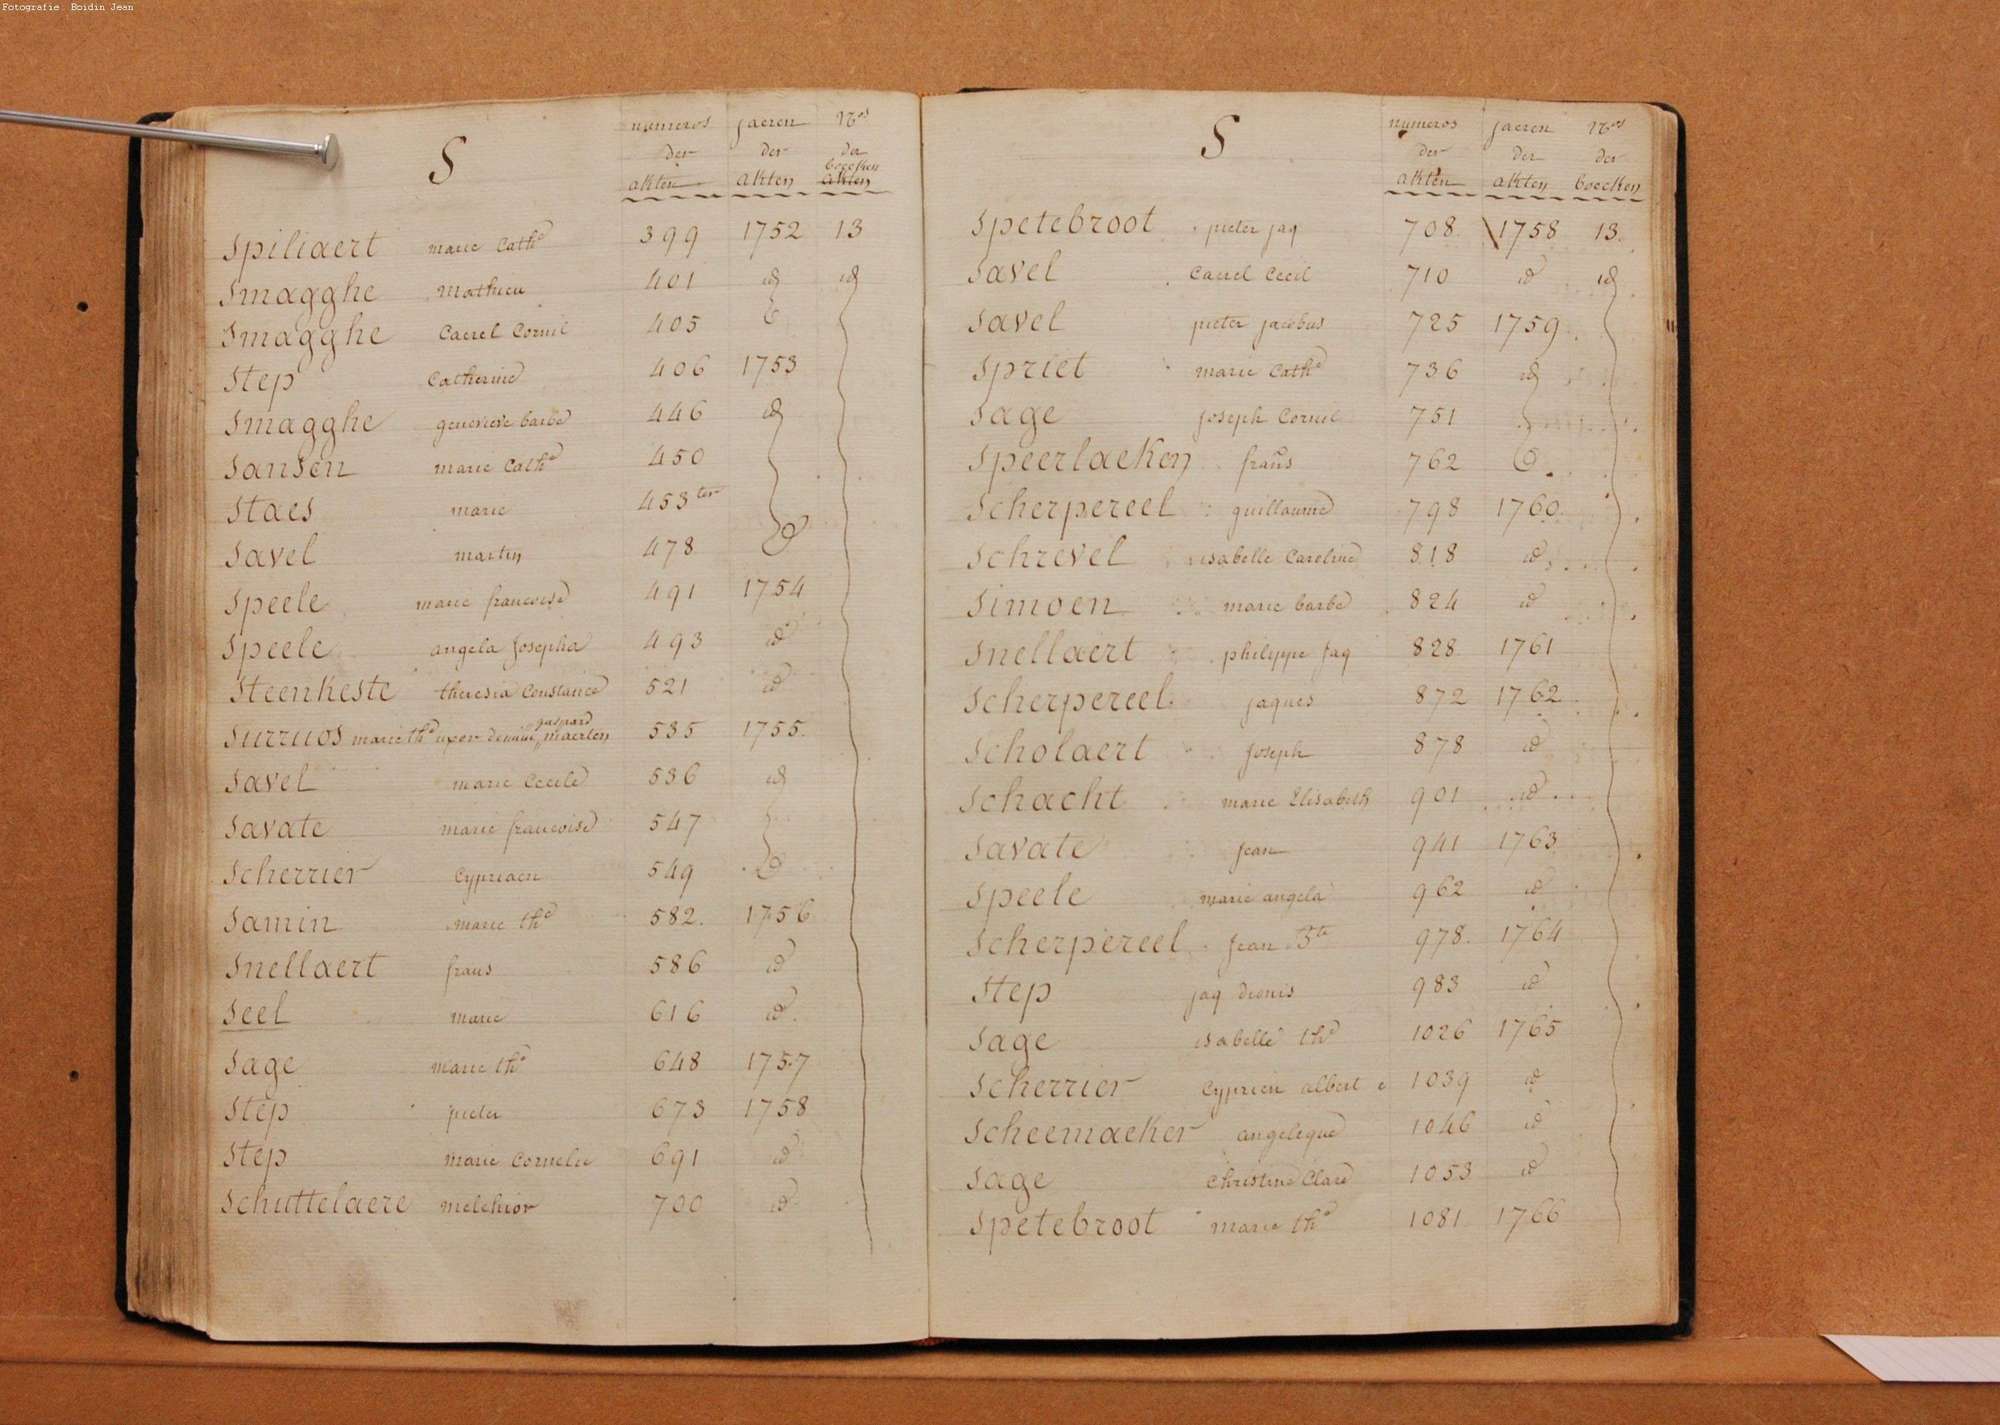 Fotografie: Boidin Jean
S
numeros der akten
jaeren der akten
Nos der boecken akten
Spiliaert marie Cathe 399 1752 13
Smagghe Mathieu 401 id id
Smagghe Caerel Cornil 405
Step Catherine 406 1753
Smagghe genevieve barbe 446 id
Sansen marie Cathe 450
Staes marie 453ter
Savel martin 478 id
Speele marie francoise 491 1754
Speele angela Josepha 493 id
Steenkeste theresia Constance 521 id
Surruos marie the uxor gaspard maerten 535 1755
Savel marie Cecile 536 id
Savate marie francoise 547
Scherrier Cypriaen 549 id
Samin marie the 582 1756
Snellaert frans 586 id
Seel marie 616 id
Sage marie the 648 1757
Step pieter 673 1758
Step marie Cornelie 691 id
Schuttelaere melchior 700 id
S
numeros der akten
jaeren der akten
Nos der boecken
Spetebroot pieter jaq 708 1758 13
Savel Caerel Cecil 710 id id
Savel pieter jacobus 725 1759
Spriet marie Cathe 736 id
Sage Joseph Cornil 751
Speerlaeken frans 762 id
Scherpereel guillaume 798 1760
Schrevel isabelle Caroline 818 id
Simoen marie barbe 824 id
Snellaert philippe Jaq 828 1761
Scherpereel jaques 872 1762
Scholaert Joseph 878 id
Schacht marie Elisabeth 901 id
Savate Jean 941 1763
Speele marie angela 962 id
Scherpereel Jean Bte 978 1764
Step jaq dionis 983 id
Sage isabelle the 1026 1765
Scherrier Cyprien albert 1039 id
Scheemaeker angelique 1046 id
Sage Christine Clare 1053 id
Spetebroot marie the 1081 1766